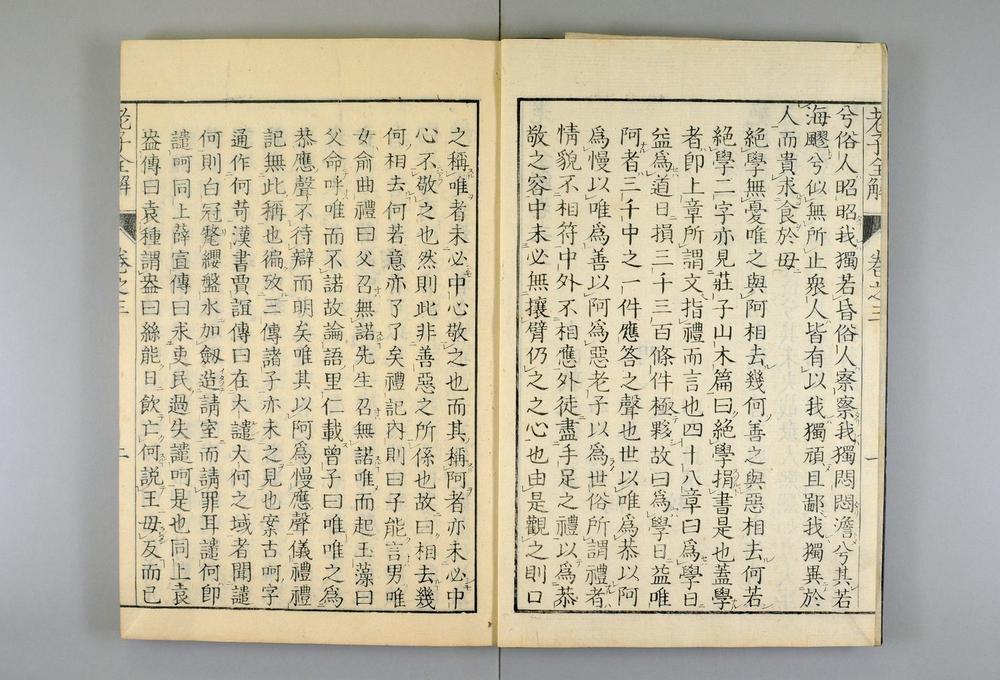 兮俗人昭昭我獨若昏俗人察察我獨悶悶澹兮其若
海飂兮似無所止衆人皆有以我獨頑且鄙我獨異於
人而貴求食於母
絶學無憂唯之與阿相去幾何善之與惡相去何若
絶學二字亦見莊子山木篇曰絶學捐書是也蓋學
者卽上章所謂文指禮而言也四十八章曰爲學日
益爲道日損三千三百條件極夥故曰爲學日益唯
阿者三千中之一件應答之聲也世以唯爲恭以阿
爲慢以唯爲善以阿爲惡老子以爲世俗所謂禮者
情貌不相符中外不相應外徒盡手足之禮以爲恭
敬之容中未必無攘臂仍之之心也由是觀之則口
之稱唯者未必中心敬之也而其稱阿者亦未必中
心不敬之也然則此非善惡之所係也故曰相去幾
何相去何若意亦了了矣禮記內則曰子能言男唯
女俞曲禮曰父召無諾先生召無諾唯而起玉藻曰
父命呼唯而不諾故論語里仁載曾子曰唯唯之爲
恭應聲不待辯而明矣唯其以阿爲慢應聲儀禮禮
記無此稱也徧攷三傳諸子亦未之見也案古呵字
通作何苛漢書賈誼傳曰在大譴大何之域者聞譴
何則白冠氂纓盤水加劔造請室而請罪耳譴何卽
譴呵同上薛宣傳曰永吏民過失譴呵是也同上袁
盎傳曰袁種謂盎曰絲能日飮亡何説王毋友而已
老子全解 卷之三 一
老子全解 卷之三